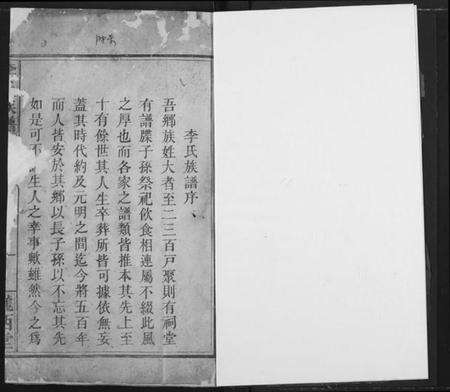 李氏族譜序
吾鄉族姓大者至二三百戸聚則有祠堂
有譜牒子孫祭祀飲食相連屬不綴此風
之厚也而各家之譜類皆推本其先上至
十有餘世其人生卒葬所皆可據依無妄
蓋其時代約及元明之間迄今將五百年
而人皆安於其鄉以長子孫以不忘其先
如是可不生人之幸事歟雖然今之爲
族譜
隴西堂